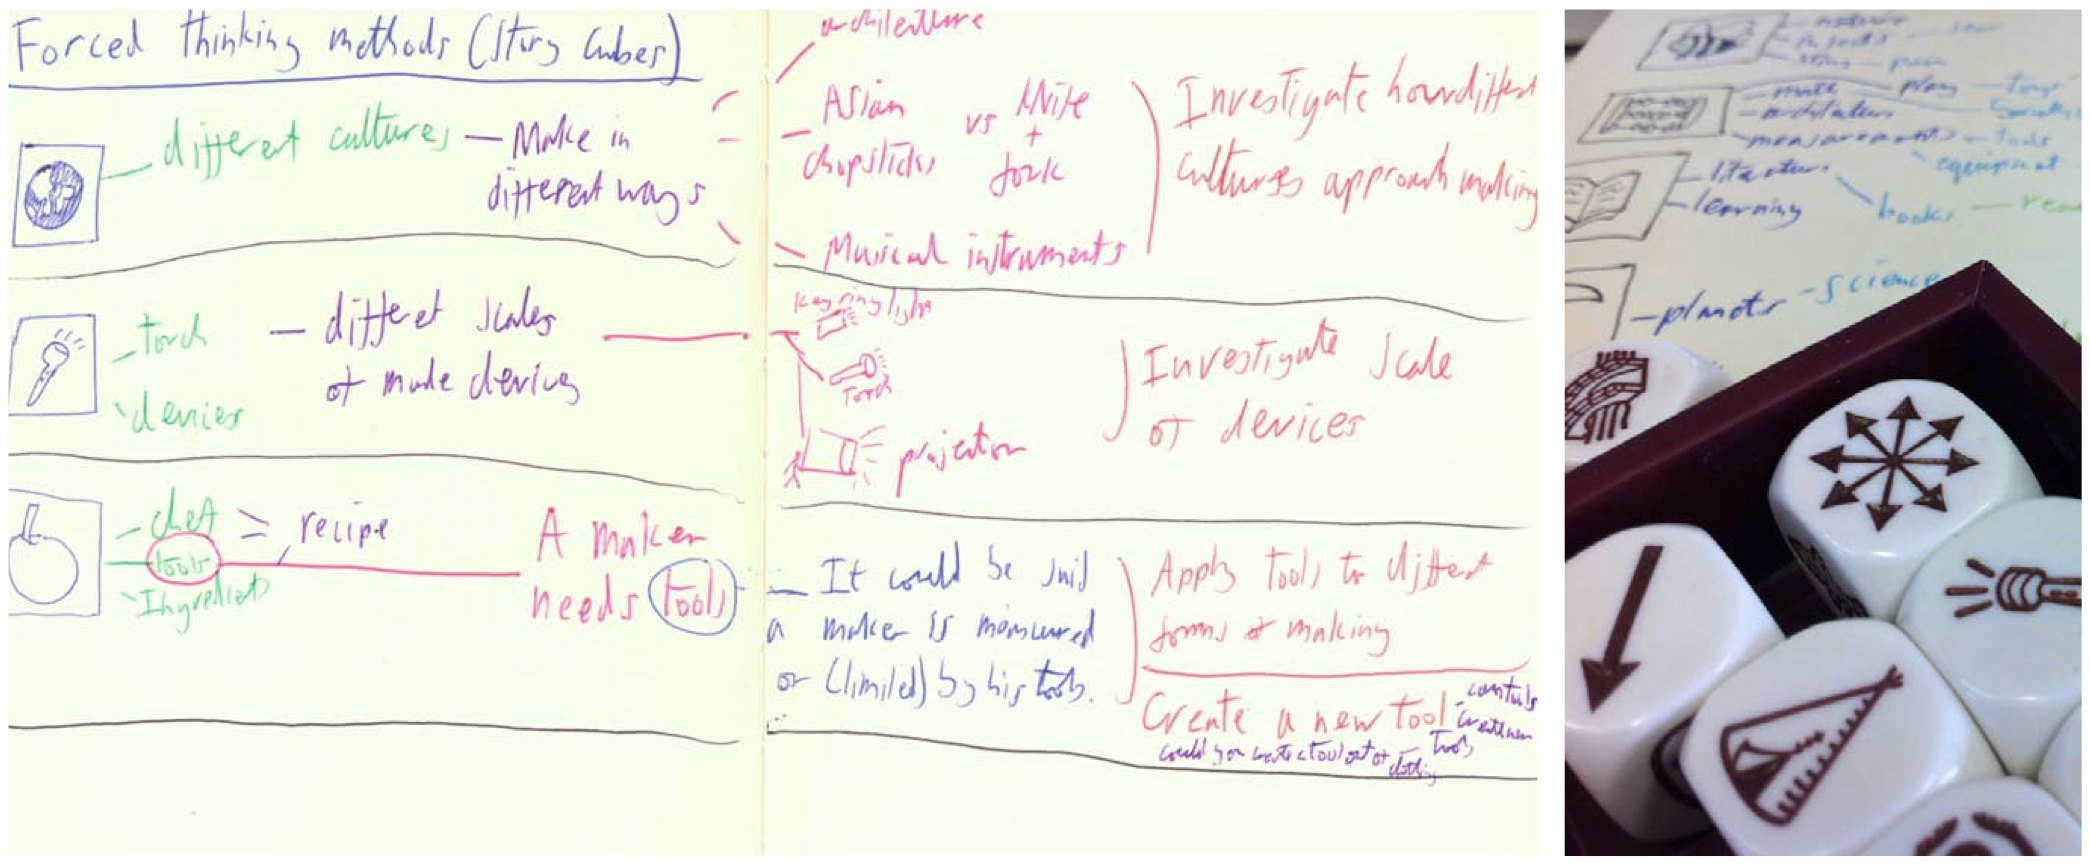 Forced thinking methods (Story Cubes)
different cultures — Make in
different ways
architecture
Asian
chopsticks
vs
knife
+
fork
Musical instruments
Investigate how different
cultures approach making
torch
devices
— different scales
of made devices
key ring light
Torch
projection
Investigate scale
of devices
chef
tools
Ingredients
= recipe
A maker
needs tools
— It could be said
a maker is measured
or (limited) by his tools.
Apply tools to different
forms of making
Create a new tool
could you create a tool out of
clothing
tools
nature
play
measurement
tools
equipment
literature
learning
books
planets - science